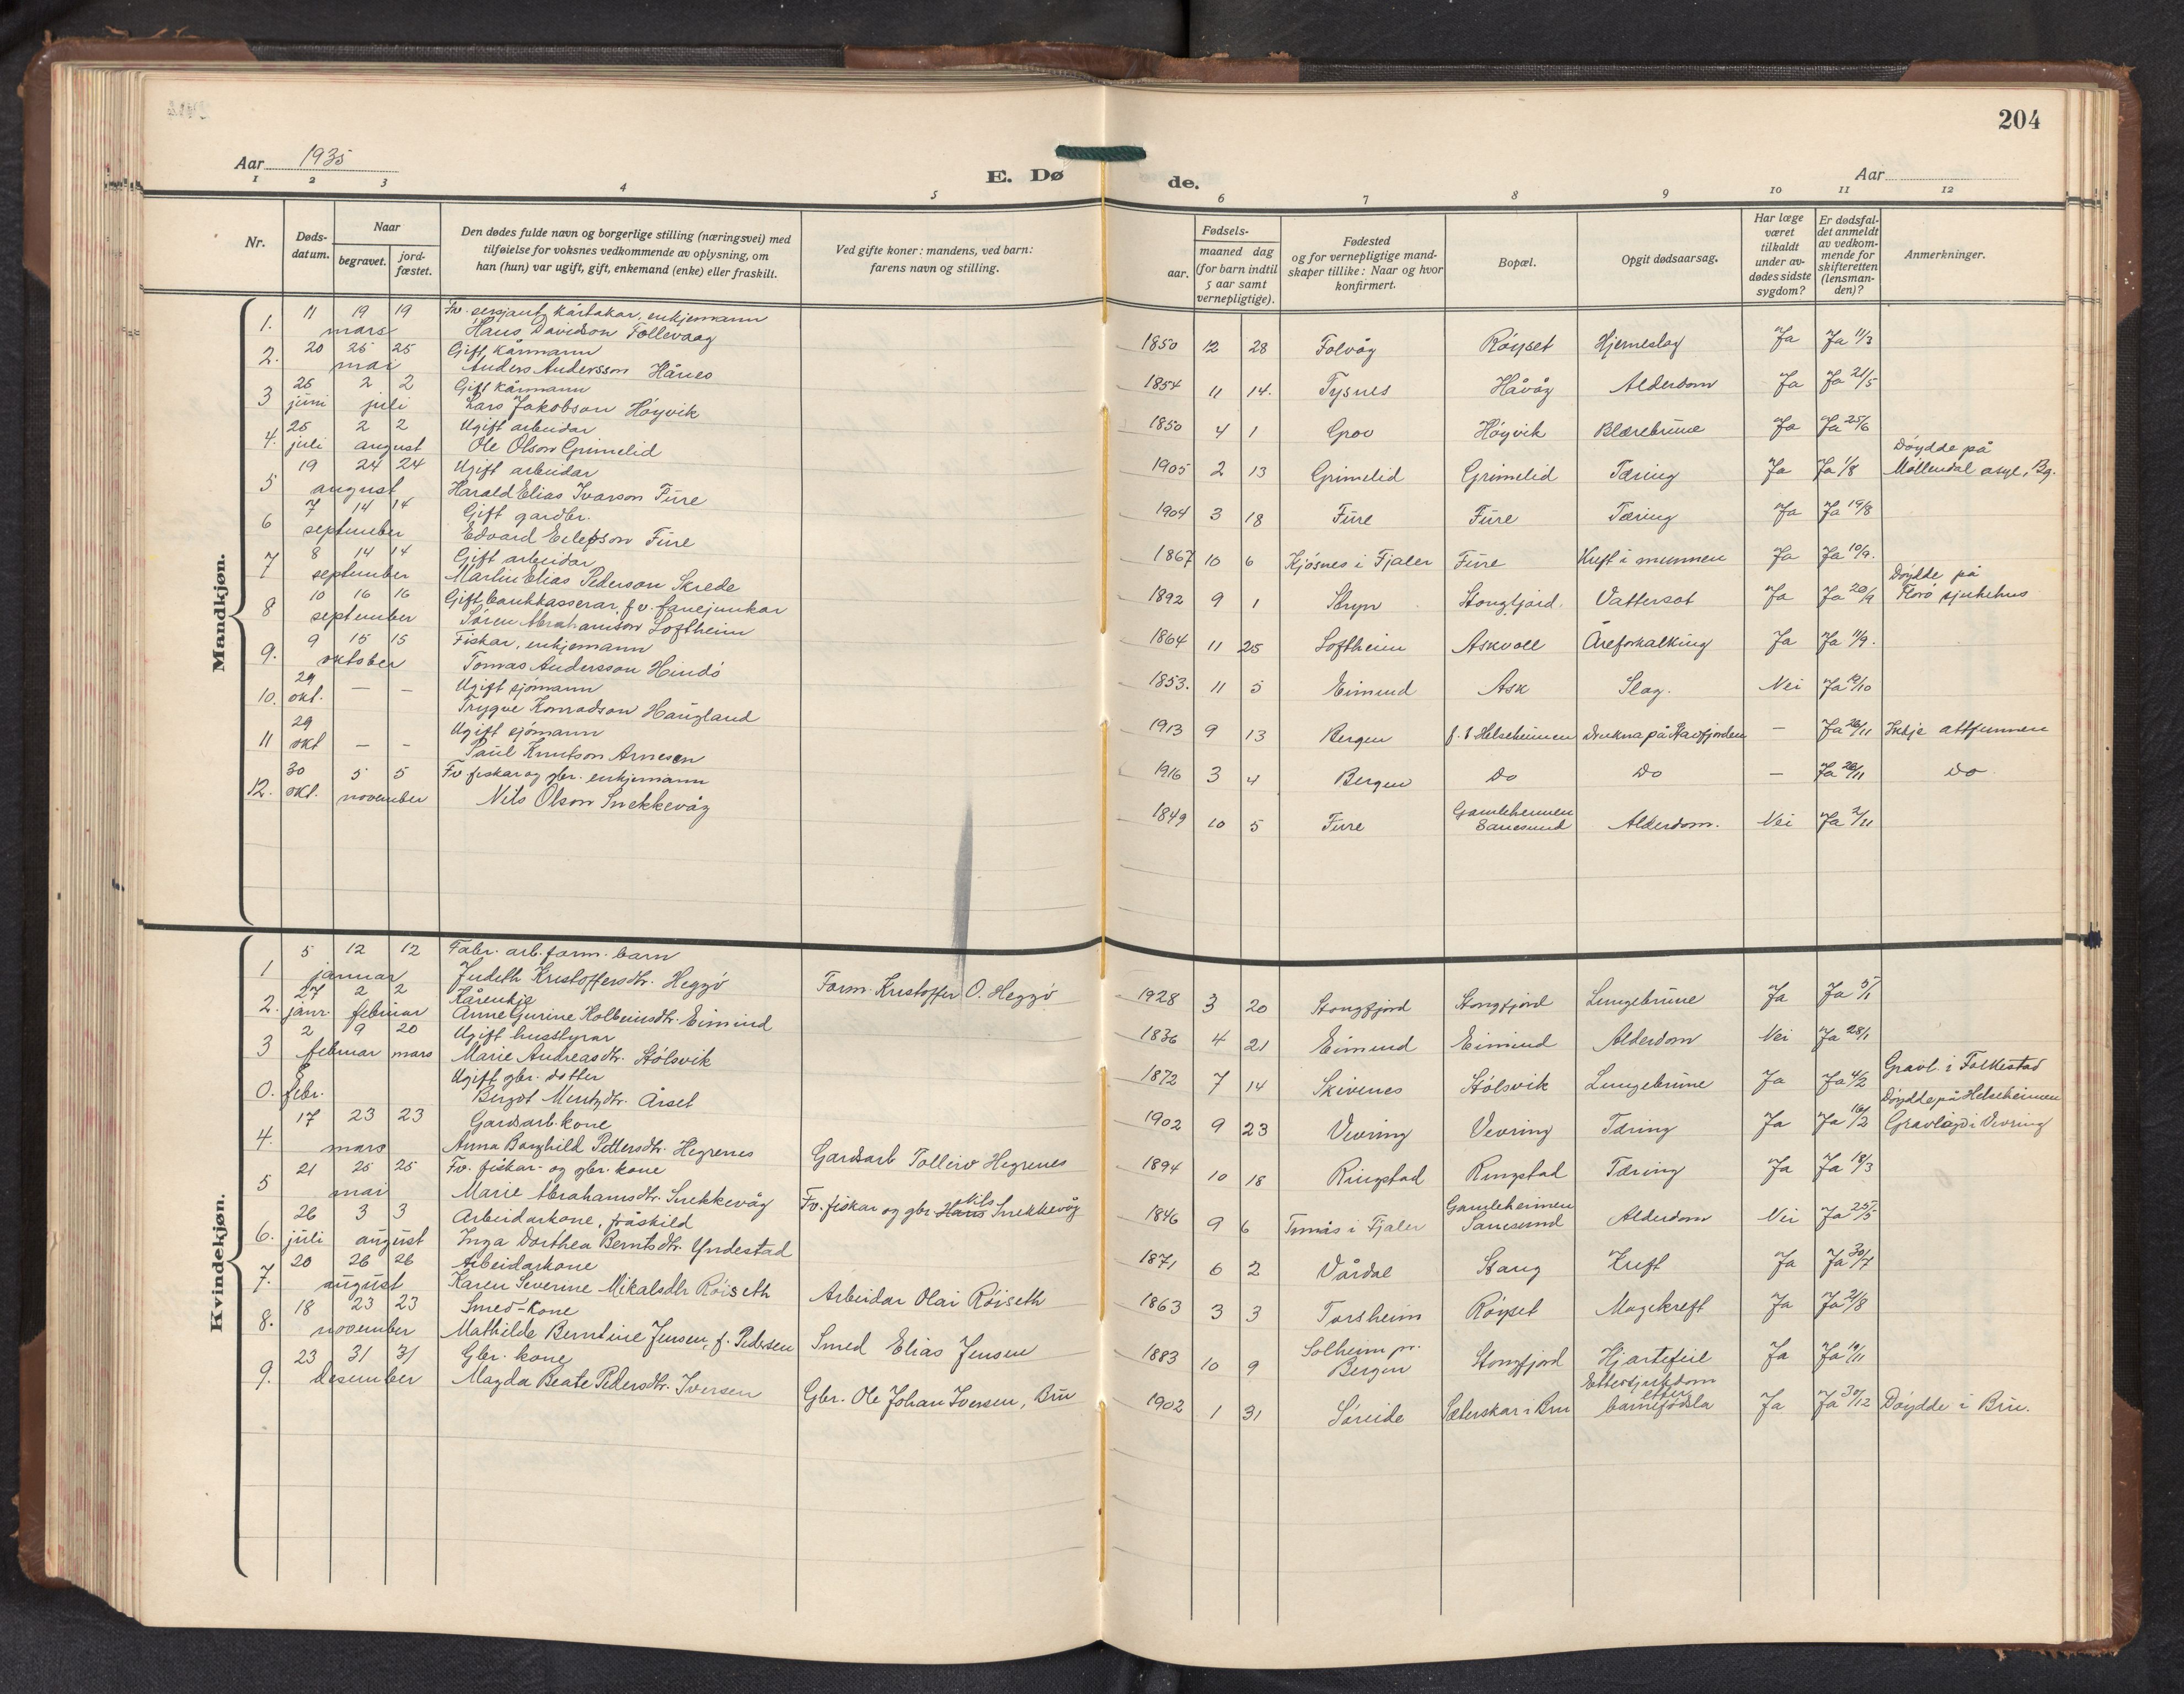 204
Aar 1935
E. Dø
de.
Aar
1 2 3 4 5 6 7 8 9 10 11 12
Nr.
Døds-datum.
Naar
begravet.
jord-fæstet.
Den dødes fulde navn og borgerlige stilling (næringsvei) med
tilføielse for voksnes vedkommende av oplysning, om
han (hun) var ugift, gift, enkemand (enke) eller fraskilt.
Ved gifte koner: mandens, ved barn:
farens navn og stilling.
Fødsels-
aar.
maaned dag
(for barn indtil
5 aar samt
vernepligtige).
Fødested
og for vernepligtige mand-
skaper tillike: Naar og hvor
konfirmert.
Bopæl.
Opgit dødsaarsag.
Har læge
været
tilkaldt
under av-
dødes sidste
sygdom?
Er dødsfal-
det anmeldt
av vedkom-
mende for
skifteretten
(lensman-
den)?
Anmerkninger.
Mandkjøn.
11 19 19 Fv. sersjant, kårtakar, enkjemann
1. mars Hans Davidson Follevaag 1850 12 28 Folvåg Røyset Hjerneslag Ja Ja 11/3
20 25 25 Gift, kårmann
2. mai Anders Andersson Hånes 1854 11 14. Tysnes Håvåg Alderdom Ja Ja 21/5
25 2 2 Gift kårmann
3 juni juli Lars Jakobson Høyvik 1850 4 1 Grov Høyvik Blærebrune Ja Ja 25/6
25 2 2 Ugift arbeidar
4. juli august Ole Olson Grimelid 1905 2 13 Grimelid Grimelid Tæring Ja Ja 1/8 Døydde på
Møllendal asyl, Bg.
19 24 24 Ugift arbeidar
5 august Harald Elias Ivarson Fure 1904 3 18 Fure Fure Tæring Ja Ja 19/8
7 14 14 Gift gardbr.
6 september Edvard Eilefson Fure 1867 10 6 Kjøsnes i Fjaler Fure Kreft i munnen Ja Ja 10/9.
8 14 14 Gift arbeidar
7 september Martin Elias Pederson Skrede 1892 9 1 Stryn Stongfjord. Vattersot Ja Ja 20/9 Døydde på
Florø sjukehus
10 16 16 Gift bankkasserar, fv. fanejunkar
8 september Søren Abrahamson Loftheim 1864 11 25 Loftheim Askvoll Åreforkalking Ja Ja 11/9.
9 15 15 Fiskar, enkjemann
9. oktober Tomas Andersson Hindø 1853. 11 5 Eimind Ask Slag. Nei Ja 10/10
29 Ugift sjømann
10. okt. – – Trygve Konradson Haugland 1913 9 13 Bergen f. t Helseheimen Drukna på Stavfjorden – Ja 26/11 Ikkje attfunnen
29 Ugift sjømann
11 okt – – Paul Knutson Arnesen 1916 3 4 Bergen Do Do – Ja 26/11 Do
30 5 5 Fv fiskar og gbr. enkjemann
12. okt. november Nils Olson Snekkevåg 1849 10 5 Fure Gamleheimen
Sauesund Alderdom. Nei Ja 2/11
Kvindekjøn.
5 12 12 Fabr. arb. form. barn
1 januar Judeth Kristoffersdtr. Heggø Form. Kristoffer O. Heggø 1928 3 20 Stongfjord Stongfjord Lungebrune Ja Ja 5/1
27 2 2 Kårenkje
2. janr. februar Anne Gurine Kolbeinsdtr. Eimind 1836 4 21 Eimind Eimind Alderdom Nei Ja 28/1
2 9 20 Ugift husstyrar
3 februar mars Marie Andreasdtr. Stølsvik 1872 7 14 Skivenes Stølsvik Lungebrune Ja Ja 4/2 Gravl. i Folkestad
8 Ugift gbr. dotter
0. febr. Birgit Mentzdtr. Årset 1902 9 23 Vevring Vevring Tæring Ja Ja 16/2 Døydde på Helseheimen
Gravlagd i Vevring
17 23 23 Gardsarb. kone
4. mars Anna Borghild Pettersdtr. Hegrenes Gardsarb Tolleiv Hegrenes 1894 10 18 Ringstad Ringstad Tæring Ja Ja 18/3
21 25 25 Fv. fiskar- og gbr. kone
5 mai Marie Abrahamsdtr. Snekkevåg Fv. fiskar og gbr. Hans Nils Snekkevåg 1846 9 6 Tunås i Fjaler Gamleheimen
Sauesund Alderdom Nei Ja 25/5
26 3 3 Arbeidarkone, fråskild
6. juli august Inga Dorthea Berntsdtr. Yndestad 1871 6 2 Vårdal Stang Kreft Ja Ja 30/7
20 26 26 Arbeidarkone
7. august Karen Severine Mikalsdtr Røiseth Arbeidar Olai Røiseth 1863 3 3 Torsheim Røyset Magekreft Ja Ja 21/8
18 23 23 Smed-kone
8. november Mathilde Berntine Jensen, f. Pedersen Smed Elias Jensen 1883 10 9 Solheim pr.
Bergen Stongfjord Hjartefeil Ja Ja 19/11
23 31 31 Gbr. kone
9. desember Magda Beate Pedersdtr. Iversen Gbr. Ole Johan Iversen, Bru 1902 1 31 Søreide Sæterskar i Bru Ettersjukdom
etter
barnefødsla Ja Ja 30/12 Døydde i Bru.